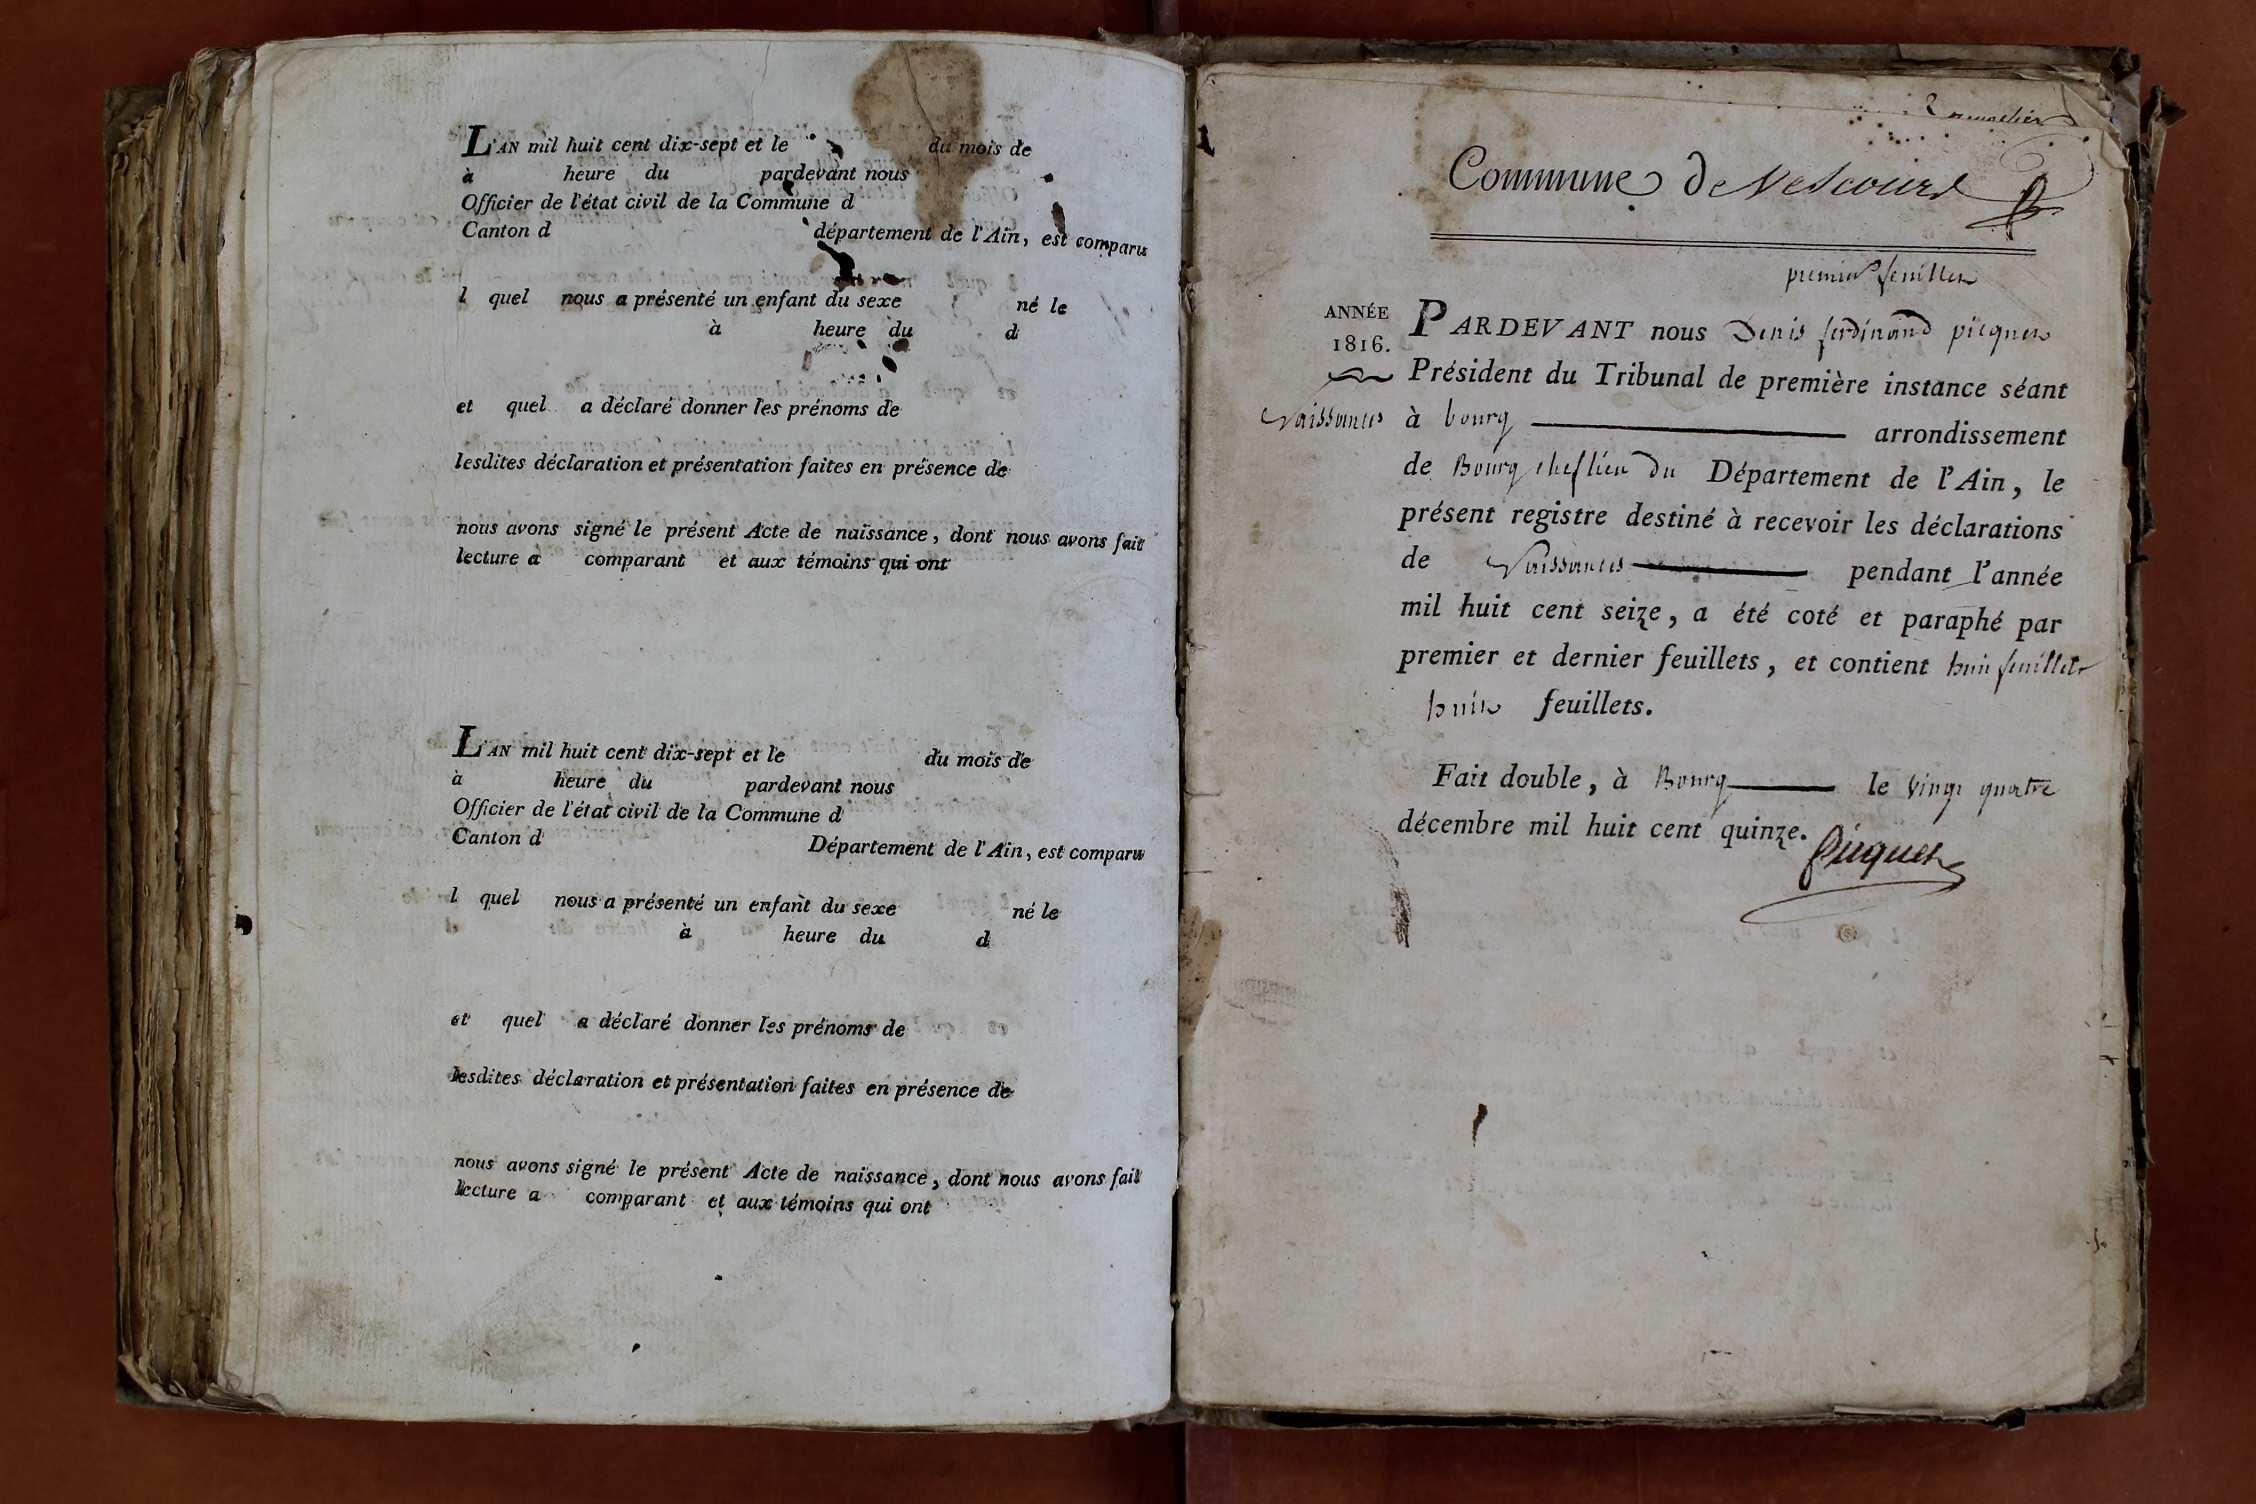 L'AN mil huit cent dix-sept et le du mois de
à heure du pardevant nous
Officier de l'état civil de la Commune d
Canton d département de l'Ain, est comparu
l quel nous a présenté un enfant du sexe né le
à heure du d
et quel a déclaré donner les prénoms de
lesdites déclaration et présentation faites en présence de
nous avons signé le présent Acte de naissance, dont nous avons fait
lecture a comparant et aux témoins qui ont
L'AN mil huit cent dix-sept et le du mois de
à heure du pardevant nous
Officier de l'état civil de la Commune d
Canton d Département de l'Ain, est comparu
l quel nous a présenté un enfant du sexe né le
à heure du d
et quel a déclaré donner les prénoms de
lesdites déclaration et présentation faites en présence de
nous avons signé le présent Acte de naissance, dont nous avons fait
lecture a comparant et aux témoins qui ont
Commune de Vescours
premier feuillet
ANNÉE
1816.
Naissances
PARDEVANT nous Denis ferdinand picquet
Président du Tribunal de première instance séant
à bourg arrondissement
de Bourg cheflieu du Département de l'Ain, le
présent registre destiné à recevoir les déclarations
de Naissances pendant l'année
mil huit cent seize, a été coté et paraphé par
premier et dernier feuillets, et contient huit feuillets
huit feuillets.
Fait double, à Bourg le vingt quatre
décembre mil huit cent quinze.
Picquet